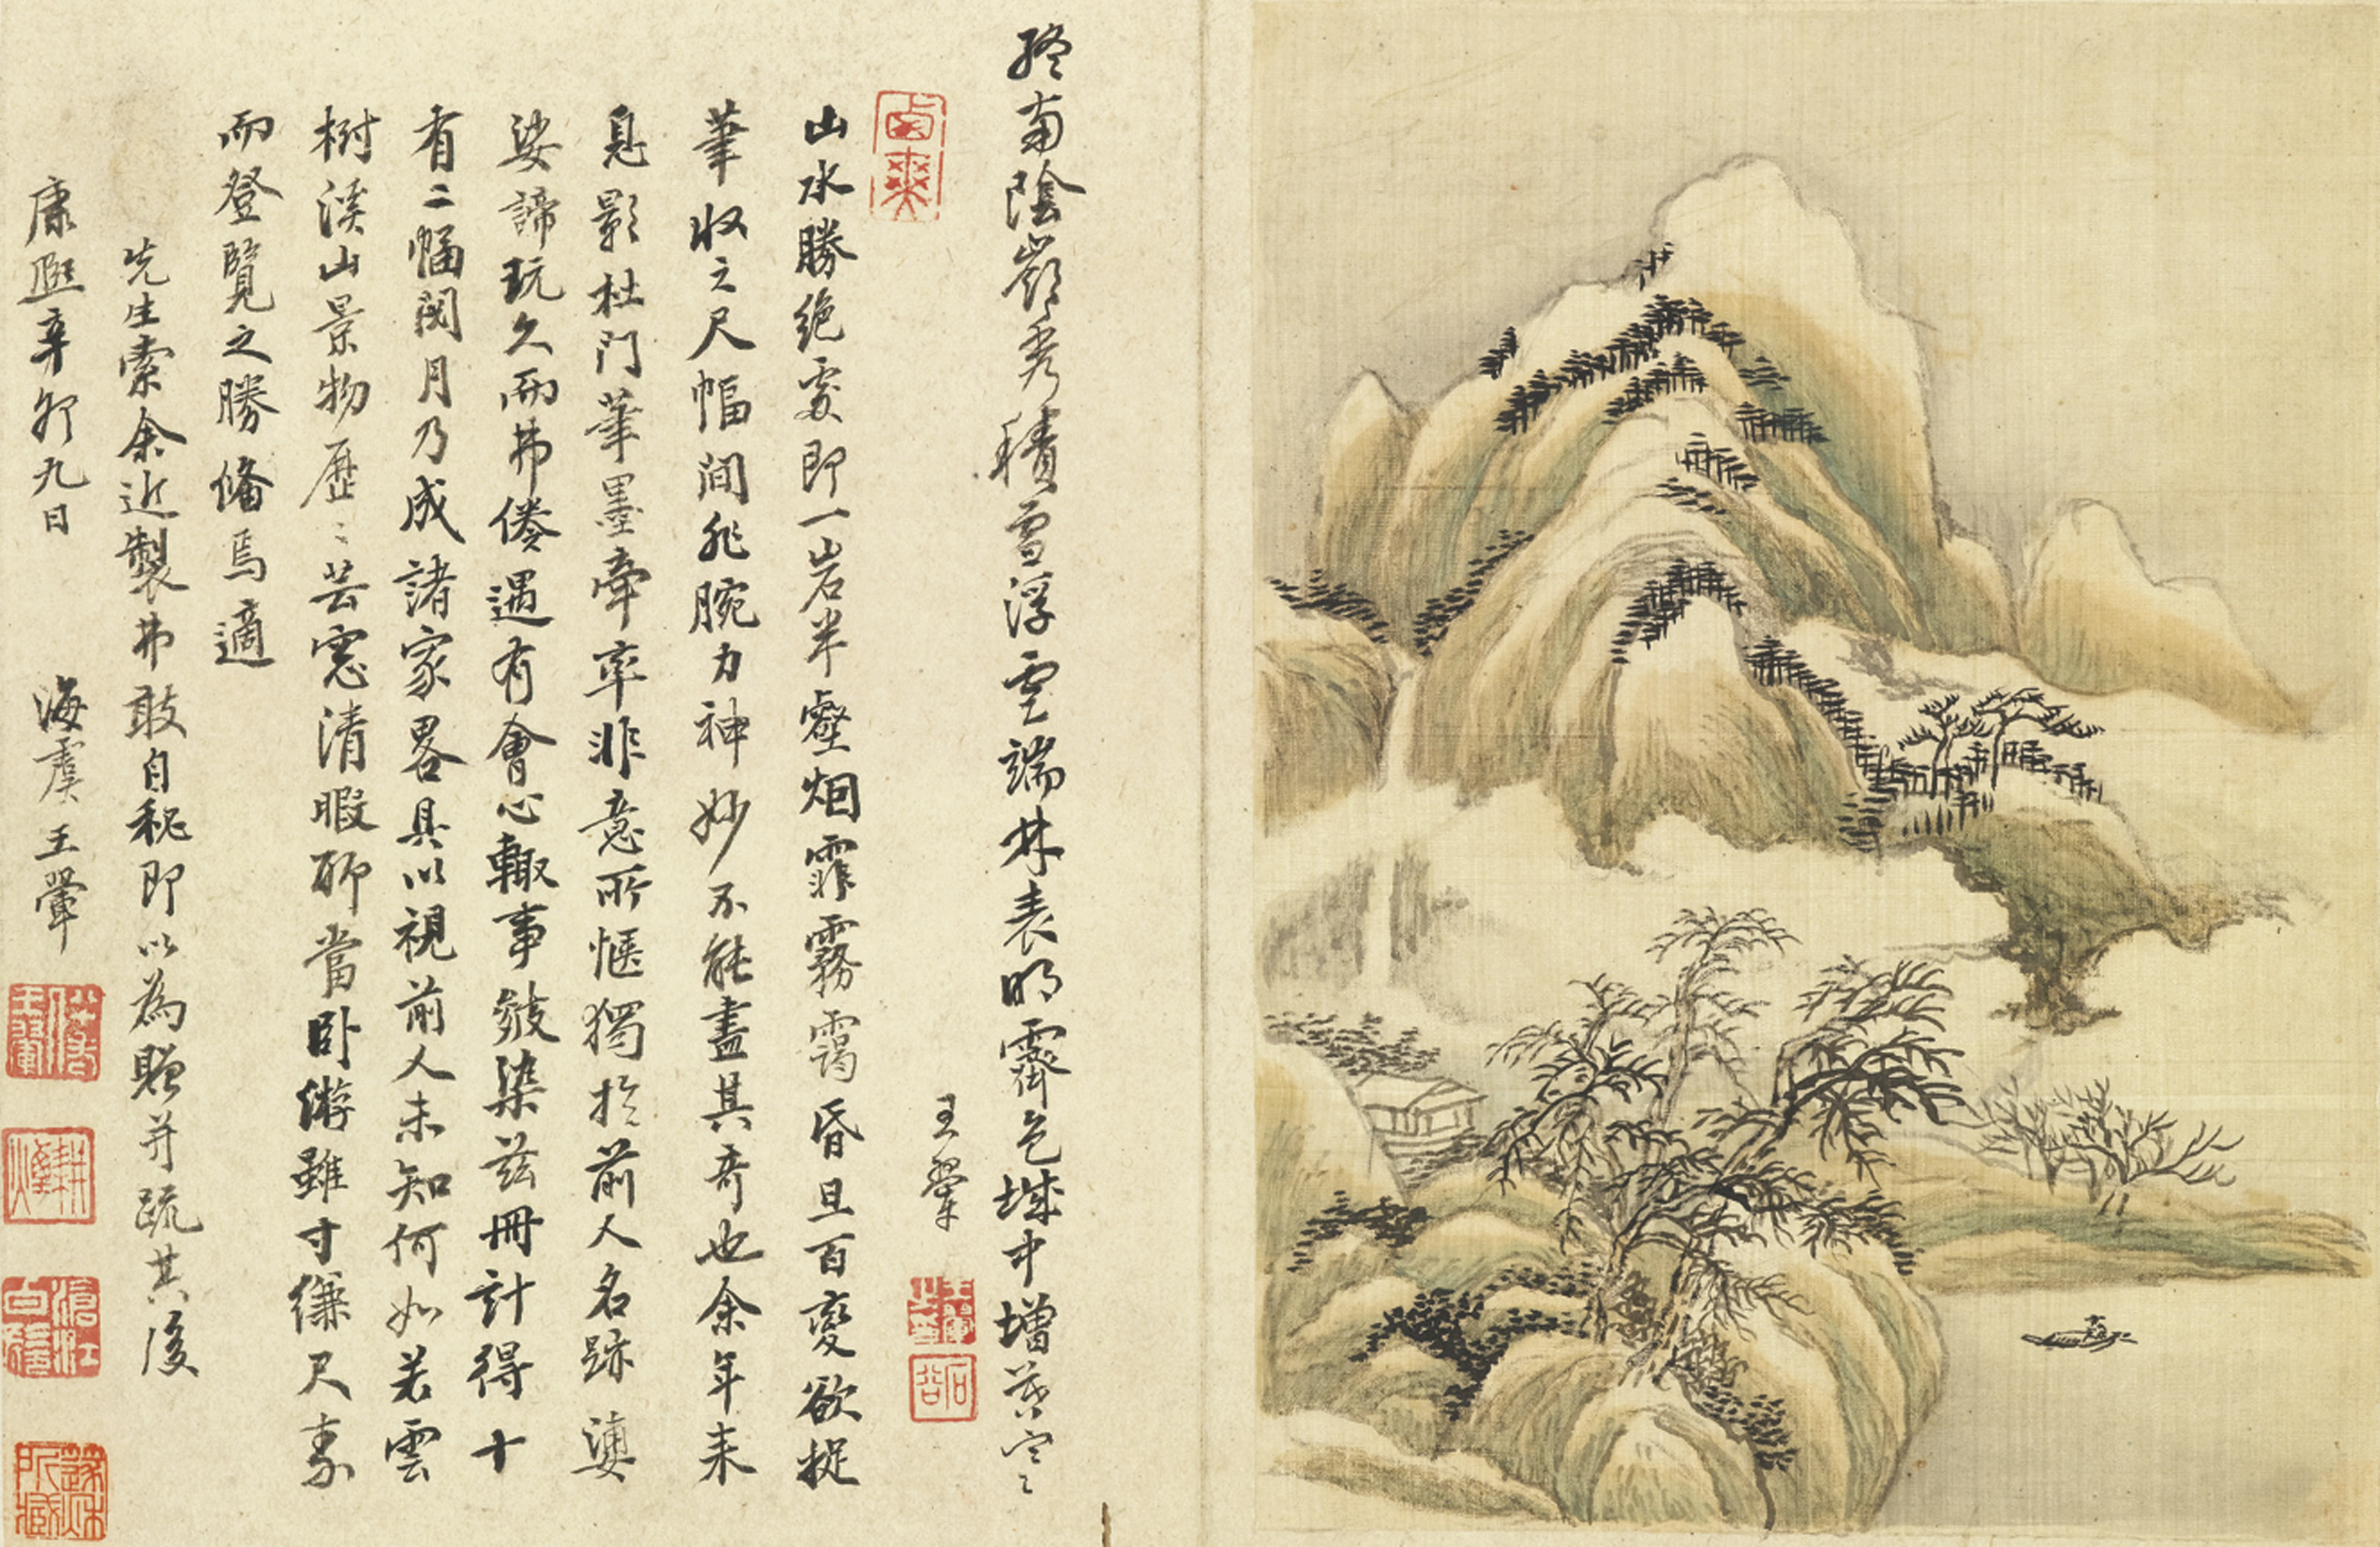 終南陰嶺秀積雪浮雲端林表明霽色城中增暮寒
王翬
山水勝絕處即一岩半壑烟霏霧靄昏旦百變欲捉
筆收之尺幅間非腕力神妙不能盡其奇也余年來
息影杜門筆墨牽率非意所愜獨於前人名跡
娑諦玩久而弗倦遇有會心輒事皴染茲冊計得十
有二幅閱月乃成諸家畧具以視前人未知何如若雲
樹溪山景物歷〻芸窓清暇聊當卧游雖寸縑尺素
而登覽之勝俻焉適
先生索余近製弗敢自秘即以為贈并疏其後
康熙辛卯九日
海虞王翬